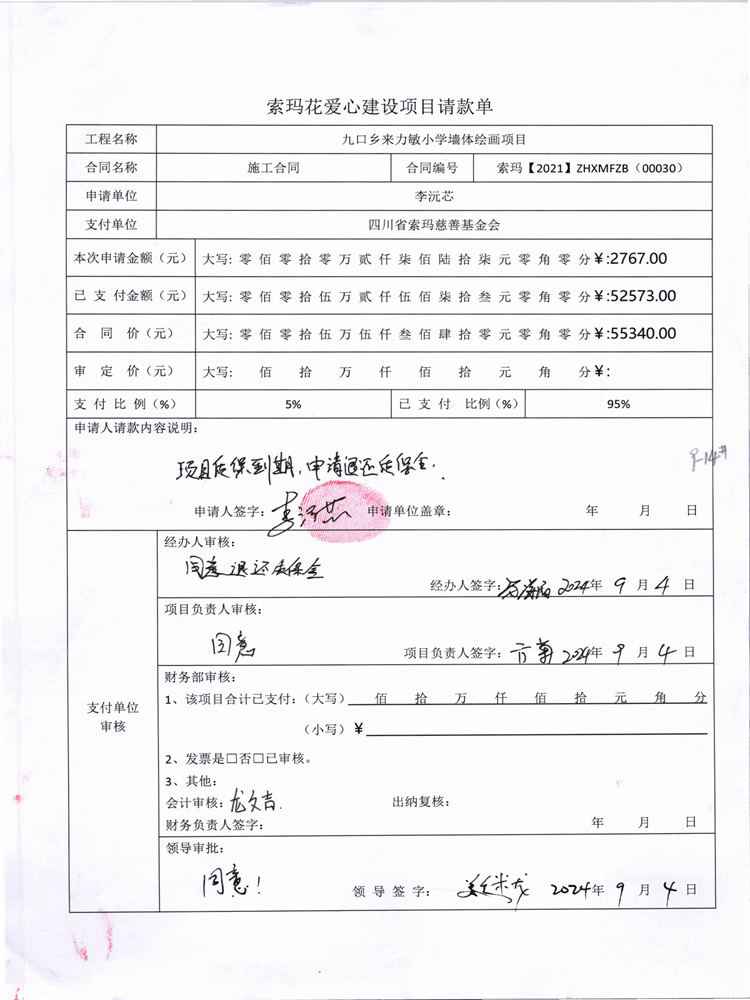 索玛花爱心建设项目请款单
工程名称 九口乡来力敏小学墙体绘画项目
合同名称 施工合同 合同编号 索玛【2021】ZHXMFZB（00030）
申请单位 李沅芯
支付单位 四川省索玛慈善基金会
本次申请金额（元） 大写: 零 佰 零 拾 零 万 贰 仟 柒 佰 陆 拾 柒 元 零 角 零 分¥:2767.00
已 支 付金额（元） 大写: 零 佰 零 拾 伍 万 贰 仟 伍 佰 柒 拾 叁 元 零 角 零 分¥:52573.00
合 同 价（元） 大写: 零 佰 零 拾 伍 万 伍 仟 叁 佰 肆 拾 零 元 零 角 零 分¥:55340.00
审 定 价（元） 大写: 佰 拾 万 仟 佰 拾 元 角 分¥:
支 付 比 例（%） 5% 已 支 付 比例（%） 95%
申请人请款内容说明:
9-14#
项目质保到期，申请退还质保金.
申请人签字: 李沅芯 申请单位盖章: 年 月 日
支付单位
审核
经办人审核:
同意退还质保金
经办人签字: 2024年 9 月 4 日
项目负责人审核:
同意
项目负责人签字: 2024年 9 月 4 日
财务部审核:
1、该项目合计已支付:（大写） 佰 拾 万 仟 佰 拾 元 角 分
（小写）¥
2、发票是□否□已审核。
3、其他:
会计审核: 龙文吉. 出纳复核:
财务负责人签字: 年 月 日
领导审批:
同意！
领 导 签 字: 2024年 9 月 4 日